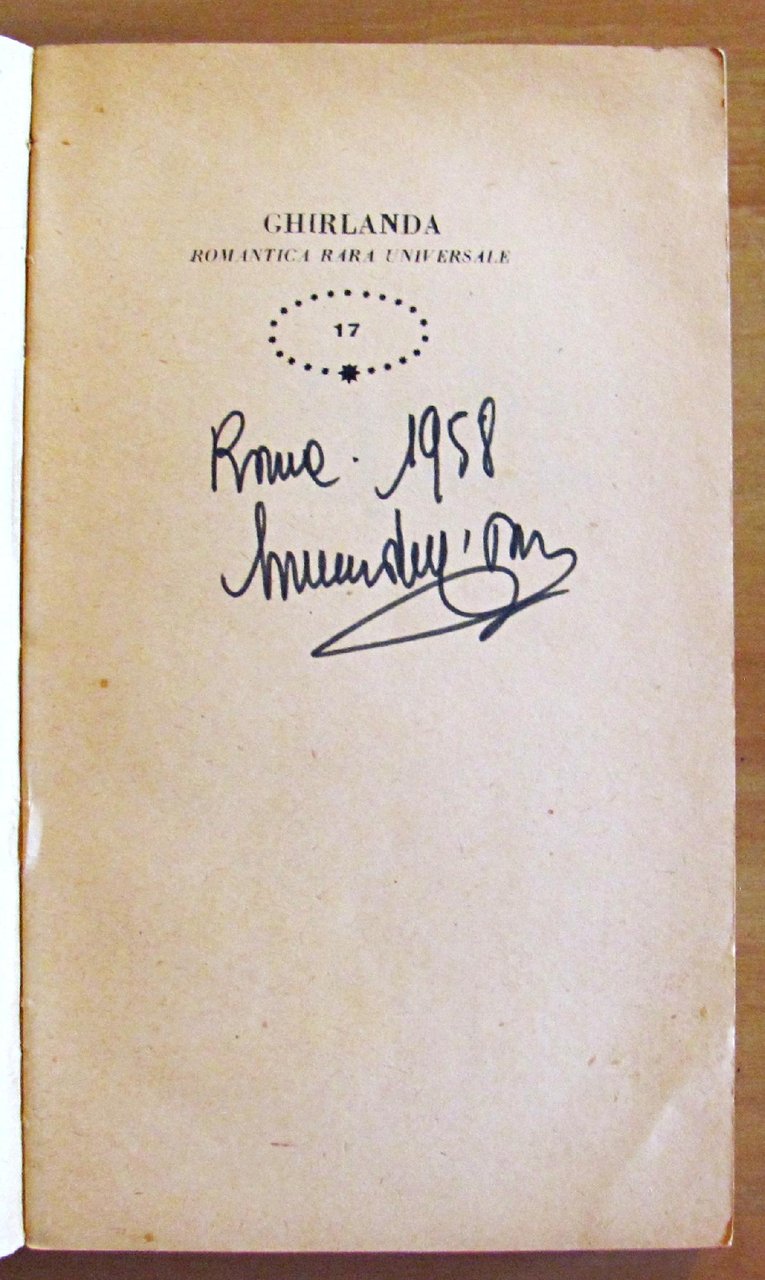 GHIRLANDA
ROMANTICA RARA UNIVERSALE
17
Roma. 1958